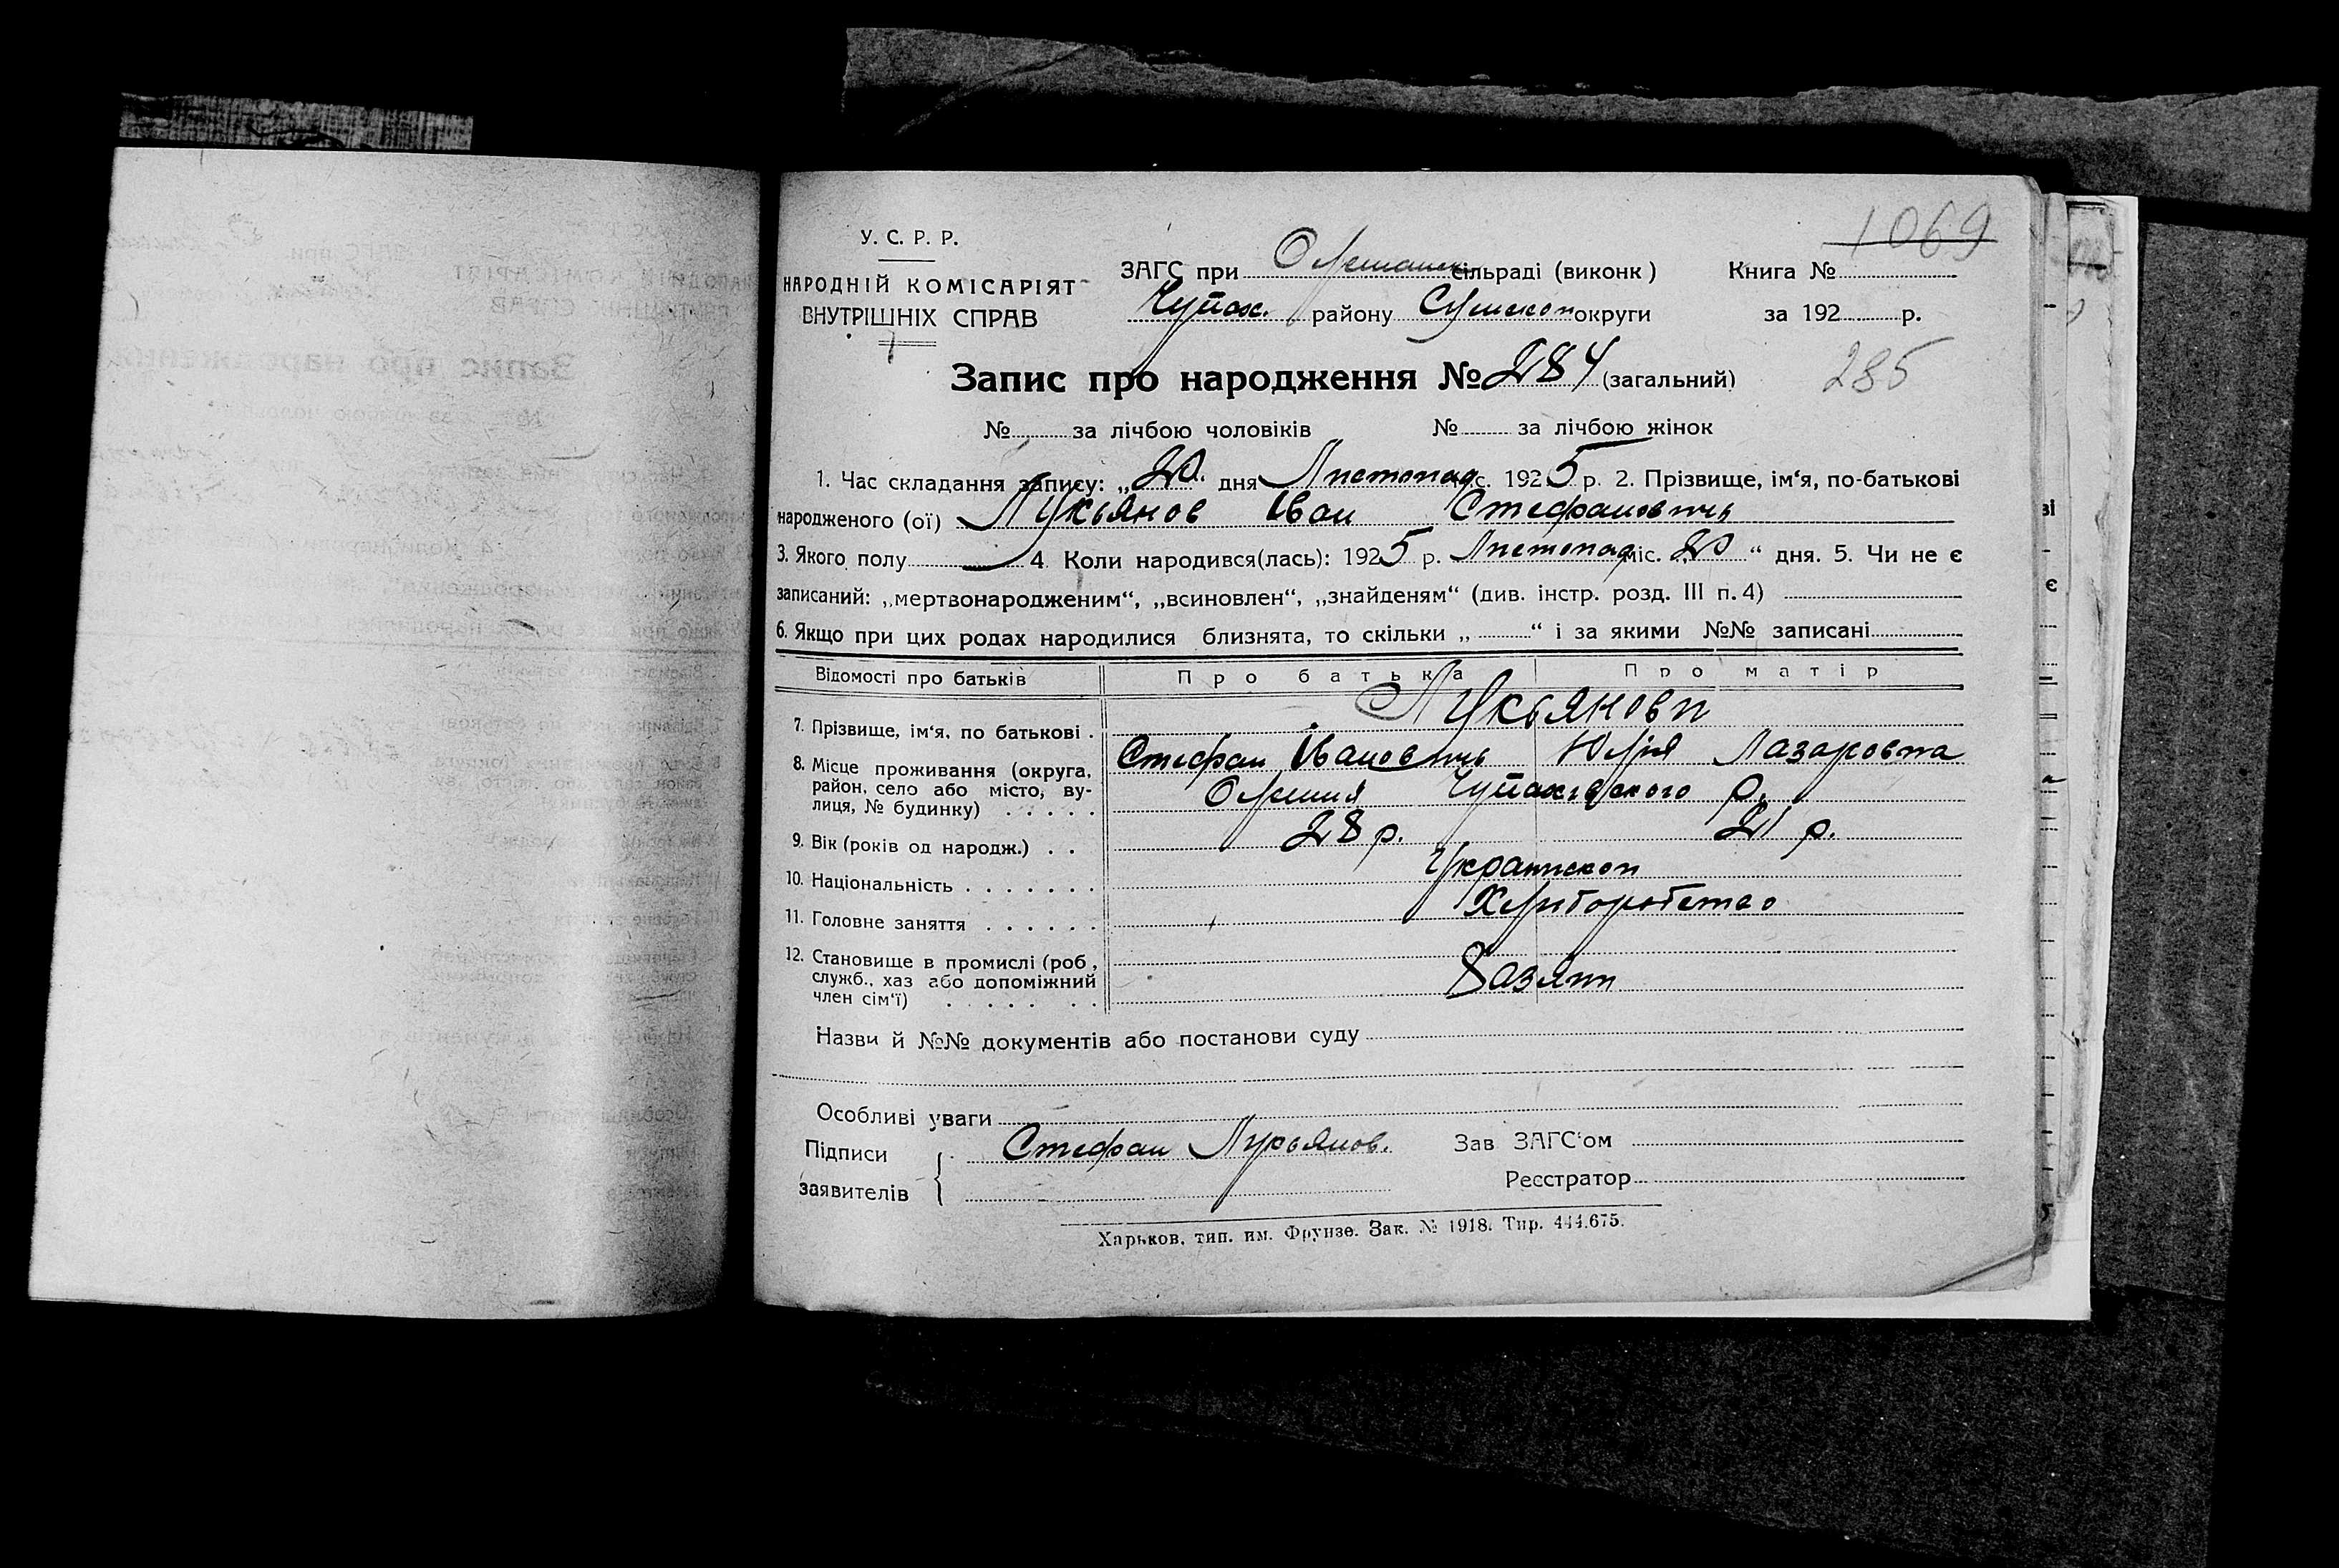 1069
У. С. Р. Р.
НАРОДНІЙ КОМІСАРІЯТ
ВНУТРІШНІХ СПРАВ
ЗАГС при Олешанск сільраді (виконк)
Книга №
Чупах. району Сумской округи
за 192 р.
Запис про народження № 284 (загальний)
285
№ за лічбою чоловіків № за лічбою жінок
1. Час складання запису: „20“ дня Листопад с. 1925 р. 2. Прізвище, ім‘я, по-батькові
народженого (ої) Лукьянов Іван Стефанович
3. Якого полу 4. Коли народився(лась): 1925 р. Листопад міс. „20“ дня. 5. Чи не є
записаний: „мертвонародженим“, „всиновлен“, „знайденям“ (див. інстр. розд. III п. 4)
6. Якщо при цих родах народилися близнята, то скільки „ “ і за якими №№ записані
Відомості про батьків Про батька Про матір
Лукьянови
7. Прізвище, ім‘я, по батькові .
Стефан Іванович Юлія Лазаровна
8. Місце проживання (округа,
район, село або місто, ву-
лиця, № будинку) . . . . .
Олешня Чупахівского р.
9. Вік (років од народж.) . . 28 р. 21 р.
10. Національність . . . . . . . Украинскои
11. Головне заняття . . . . . . Хлиборобство
12. Становище в промислі (роб,
служб., хаз або допоміжний
член сім‘ї) . . . . . . .
Хазяин
Назви й №№ документів або постанови суду
Особливі уваги
Підписи
заявителів
Стефан Лукьянов.
Зав ЗАГС‘ом
Реєстратор
Харьков, тип. им. Фрунзе. Зак. № 1918. Тир. 444.675.